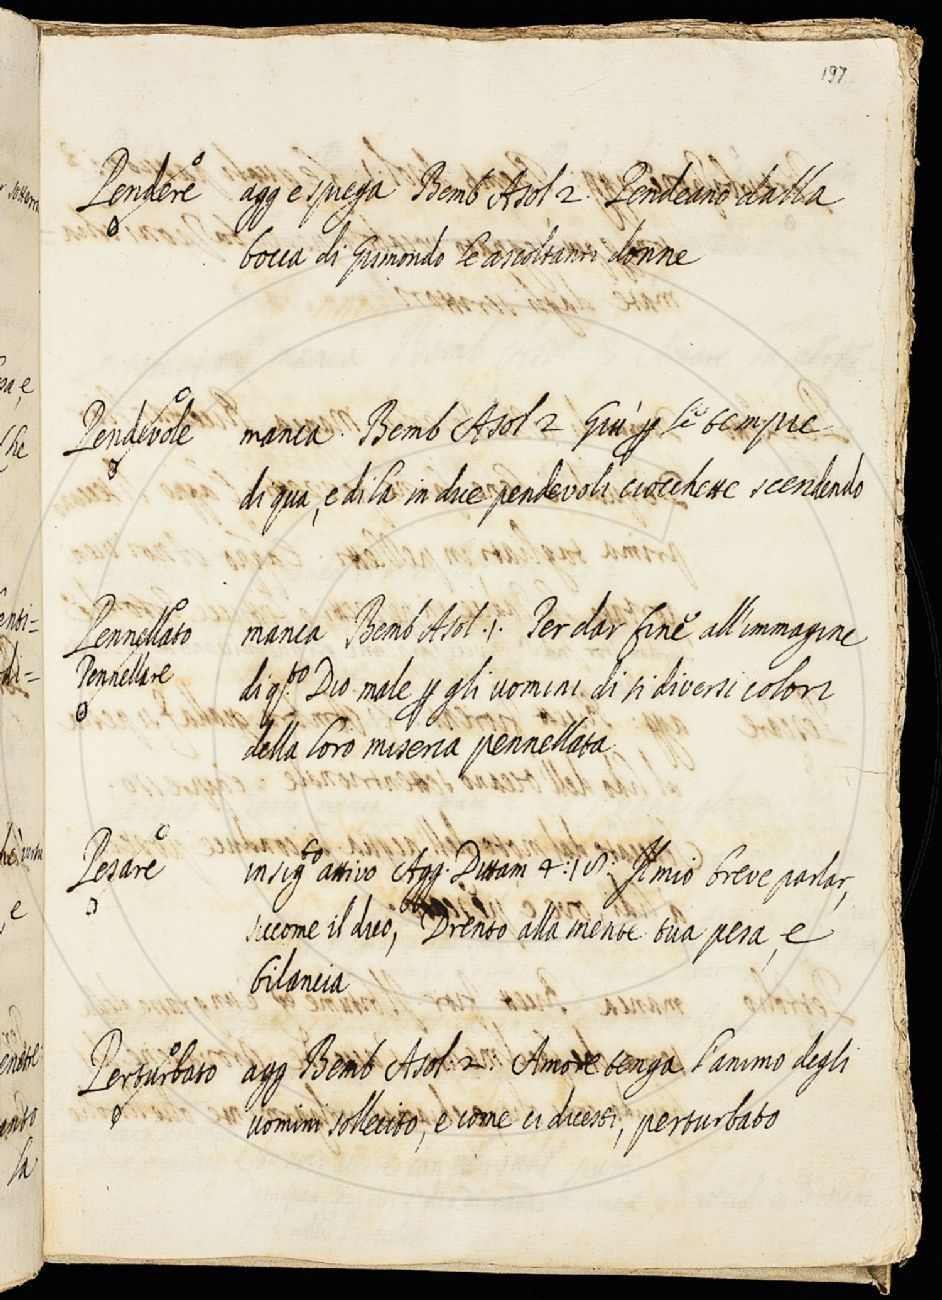 197
Pendere agg e spiega Bemb Asol 2. Pendeano dalla
bocca di Gismondo le ascoltanti donne
Pendevole manca. Bemb Asol 2 Giù p le tempie
di qua, e di la in due pendevoli ciocchette scendendo
Pennellato manca Bemb Asol. 1. Per dar fine all'immagine
Pennellare di q.to Dio male p gli uomini di si diversi colori
della loro miseria pennellata
Pesare in sig.to attivo Agg. Dittam 4:18: Il mio breve parlar,
siccome il dico, Drento alla mente tua pesa, e
bilancia
Perturbato agg Bemb Asol. 2: Amore tenga l'animo degli
uomini sollecito, e come ci dicesti, perturbato